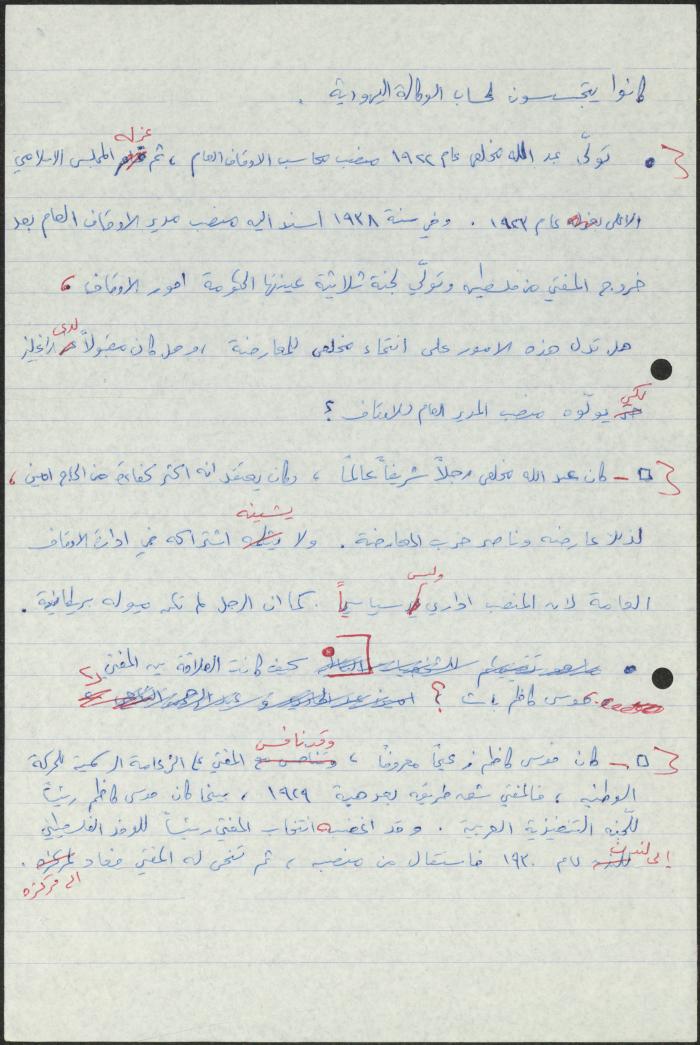 كانوا يتجسسون لحساب الوكالة اليهودية .
• تولّى عبد الله مخلص عام ١٩٢٢ منصب محاسب الاوقاف العام ، ثم عزله المجلس الاسلامي
الاعلى عام ١٩٢٣ . وفي سنة ١٩٣٨ اسند اليه منصب مدير الاوقاف العام بعد
خروج المفتي من فلسطين وتولّي لجنة ثلاثية عينتها الحكومة امور الاوقاف ،
هل تدل هذه الامور على انتماء مخلص للمعارضة ، وهل كان مقبولاً لدى الانجليز
لكي يولّوه منصب المدير العام للاوقاف ؟
□ - كان عبد الله مخلص رجلاً شريفاً عالماً ، وكان يعتقد انه اكثر كفاءة من الحاج امين ،
لذلك عارضه وناصر حزب المعارضة . ولا يشينه اشتراكه في ادارة الاوقاف
العامة لان المنصب اداري وليس سياسياً . كما ان الرجل لم تكن ميوله بريطانية .
• كيف كانت العلاقة بين المفتي
وموسى كاظم باشا ؟
□ - كان موسى كاظم زعيماً معروفاً ، وقد نافس المفتي على الزعامة الرسمية للحركة
الوطنية ، فالمفتي شق طريقه بعد هبة ١٩٢٩ ، بينما كان موسى كاظم رئيساً
للجنة التنفيذية العربية . وقد اغضبه انتخاب المفتي رئيساً للوفد الفلسطيني
إلى لندن عام ١٩٣٠ فاستقال من منصبه ، ثم تنحى له المفتي فعاد الى مركزه .